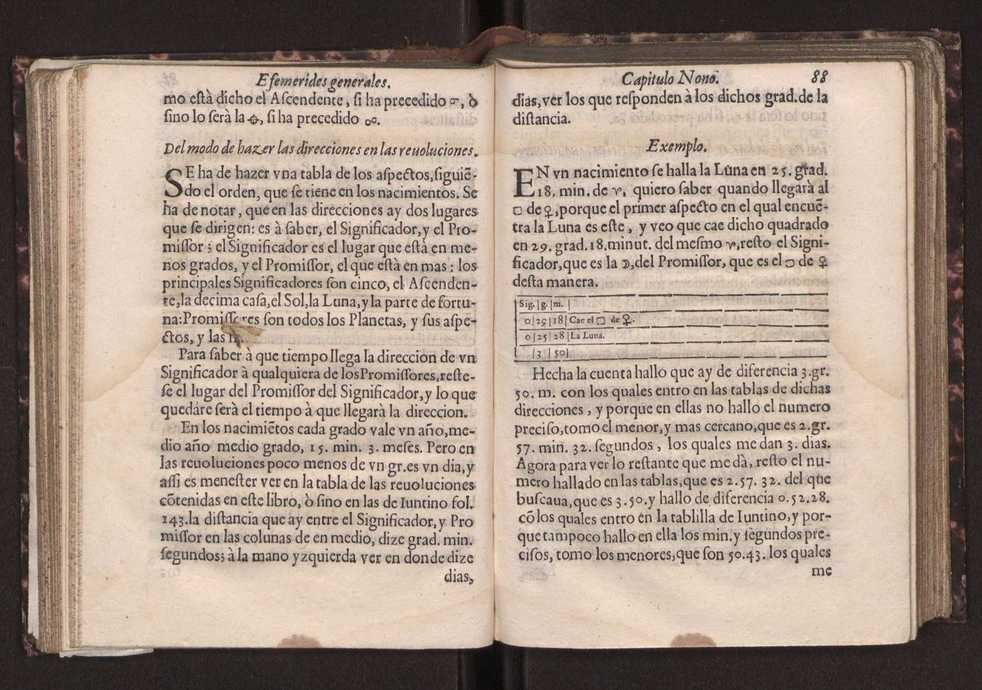 Efemerides generales.
mo està dicho el Ascendente, si ha precedido ☌, ò
sino lo serà la ⊕, si ha precedido ☍.
Del modo de hazer las direcciones en las reuoluciones.
SE ha de hazer vna tabla de los aspectos, siguiẽ-
do el orden, que se tiene en los nacimientos. Se
ha de notar, que en las direcciones ay dos lugares
que se dirigen: es à saber, el Significador, y el Pro-
missor; el Significador es el lugar que està en me-
nos grados, y el Promissor, el que està en mas: los
principales Significadores son cinco, el Ascenden-
te, la decima casa, el Sol, la Luna, y la parte de fortu-
na: Promissores son todos los Planetas, y sus aspe-
ctos, y las
Para saber à que tiempo llega la direccion de vn
Significador à qualquiera de los Promissores, reste-
se el lugar del Promissor del Significador, y lo que
quedàre serà el tiempo à que llegarà la direccion.
En los nacimiẽtos cada grado vale vn año, me-
dio año medio grado, 15. min. 3. meses. Pero en
las reuoluciones poco menos de vn gr. es vn dia, y
assi es menester ver en la tabla de las reuoluciones
cõtenidas en este libro, ò sino en las de Iuntino fol.
143. la distancia que ay entre el Significador, y Pro
missor en las colunas de en medio, dize grad. min.
segundos; à la mano yzquierda ver en donde dize
dias,
Capitulo Nono. 88
dias, ver los que responden à los dichos grad. de la
distancia.
Exemplo.
EN vn nacimiento se halla la Luna en 25. grad.
18. min. de ♈, quiero saber quando llegarà al
□ de ♀, porque el primer aspecto en el qual encuẽ-
tra la Luna es este, y veo que cae dicho quadrado
en 29. grad. 18. minut. del mesmo ♈, resto el Signi-
ficador, que es la ☽, del Promissor, que es el □ de ♀
desta manera.
Sig. | g. | m. |
0 | 29 | 18 | Cae el □ de ♀.
0 | 25 | 28 | La Luna.
| 3 | 50 |
Hecha la cuenta hallo que ay de diferencia 3. gr.
50. m. con los quales entro en las tablas de dichas
direcciones, y porque en ellas no hallo el numero
preciso, tomo el menor, y mas cercano, que es 2. gr.
57. min. 32. segundos, los quales me dan 3. dias.
Agora para ver lo restante que me dà, resto el nu-
mero hallado en las tablas, que es 2. 57. 32. del que
buscaua, que es 3. 50. y hallo de diferencia 0. 52. 28.
cõ los quales entro en la tablilla de Iuntino, y por-
que tampoco hallo en ella los min. y segundos pre-
cisos, tomo los menores, que son 50. 43. los quales
me